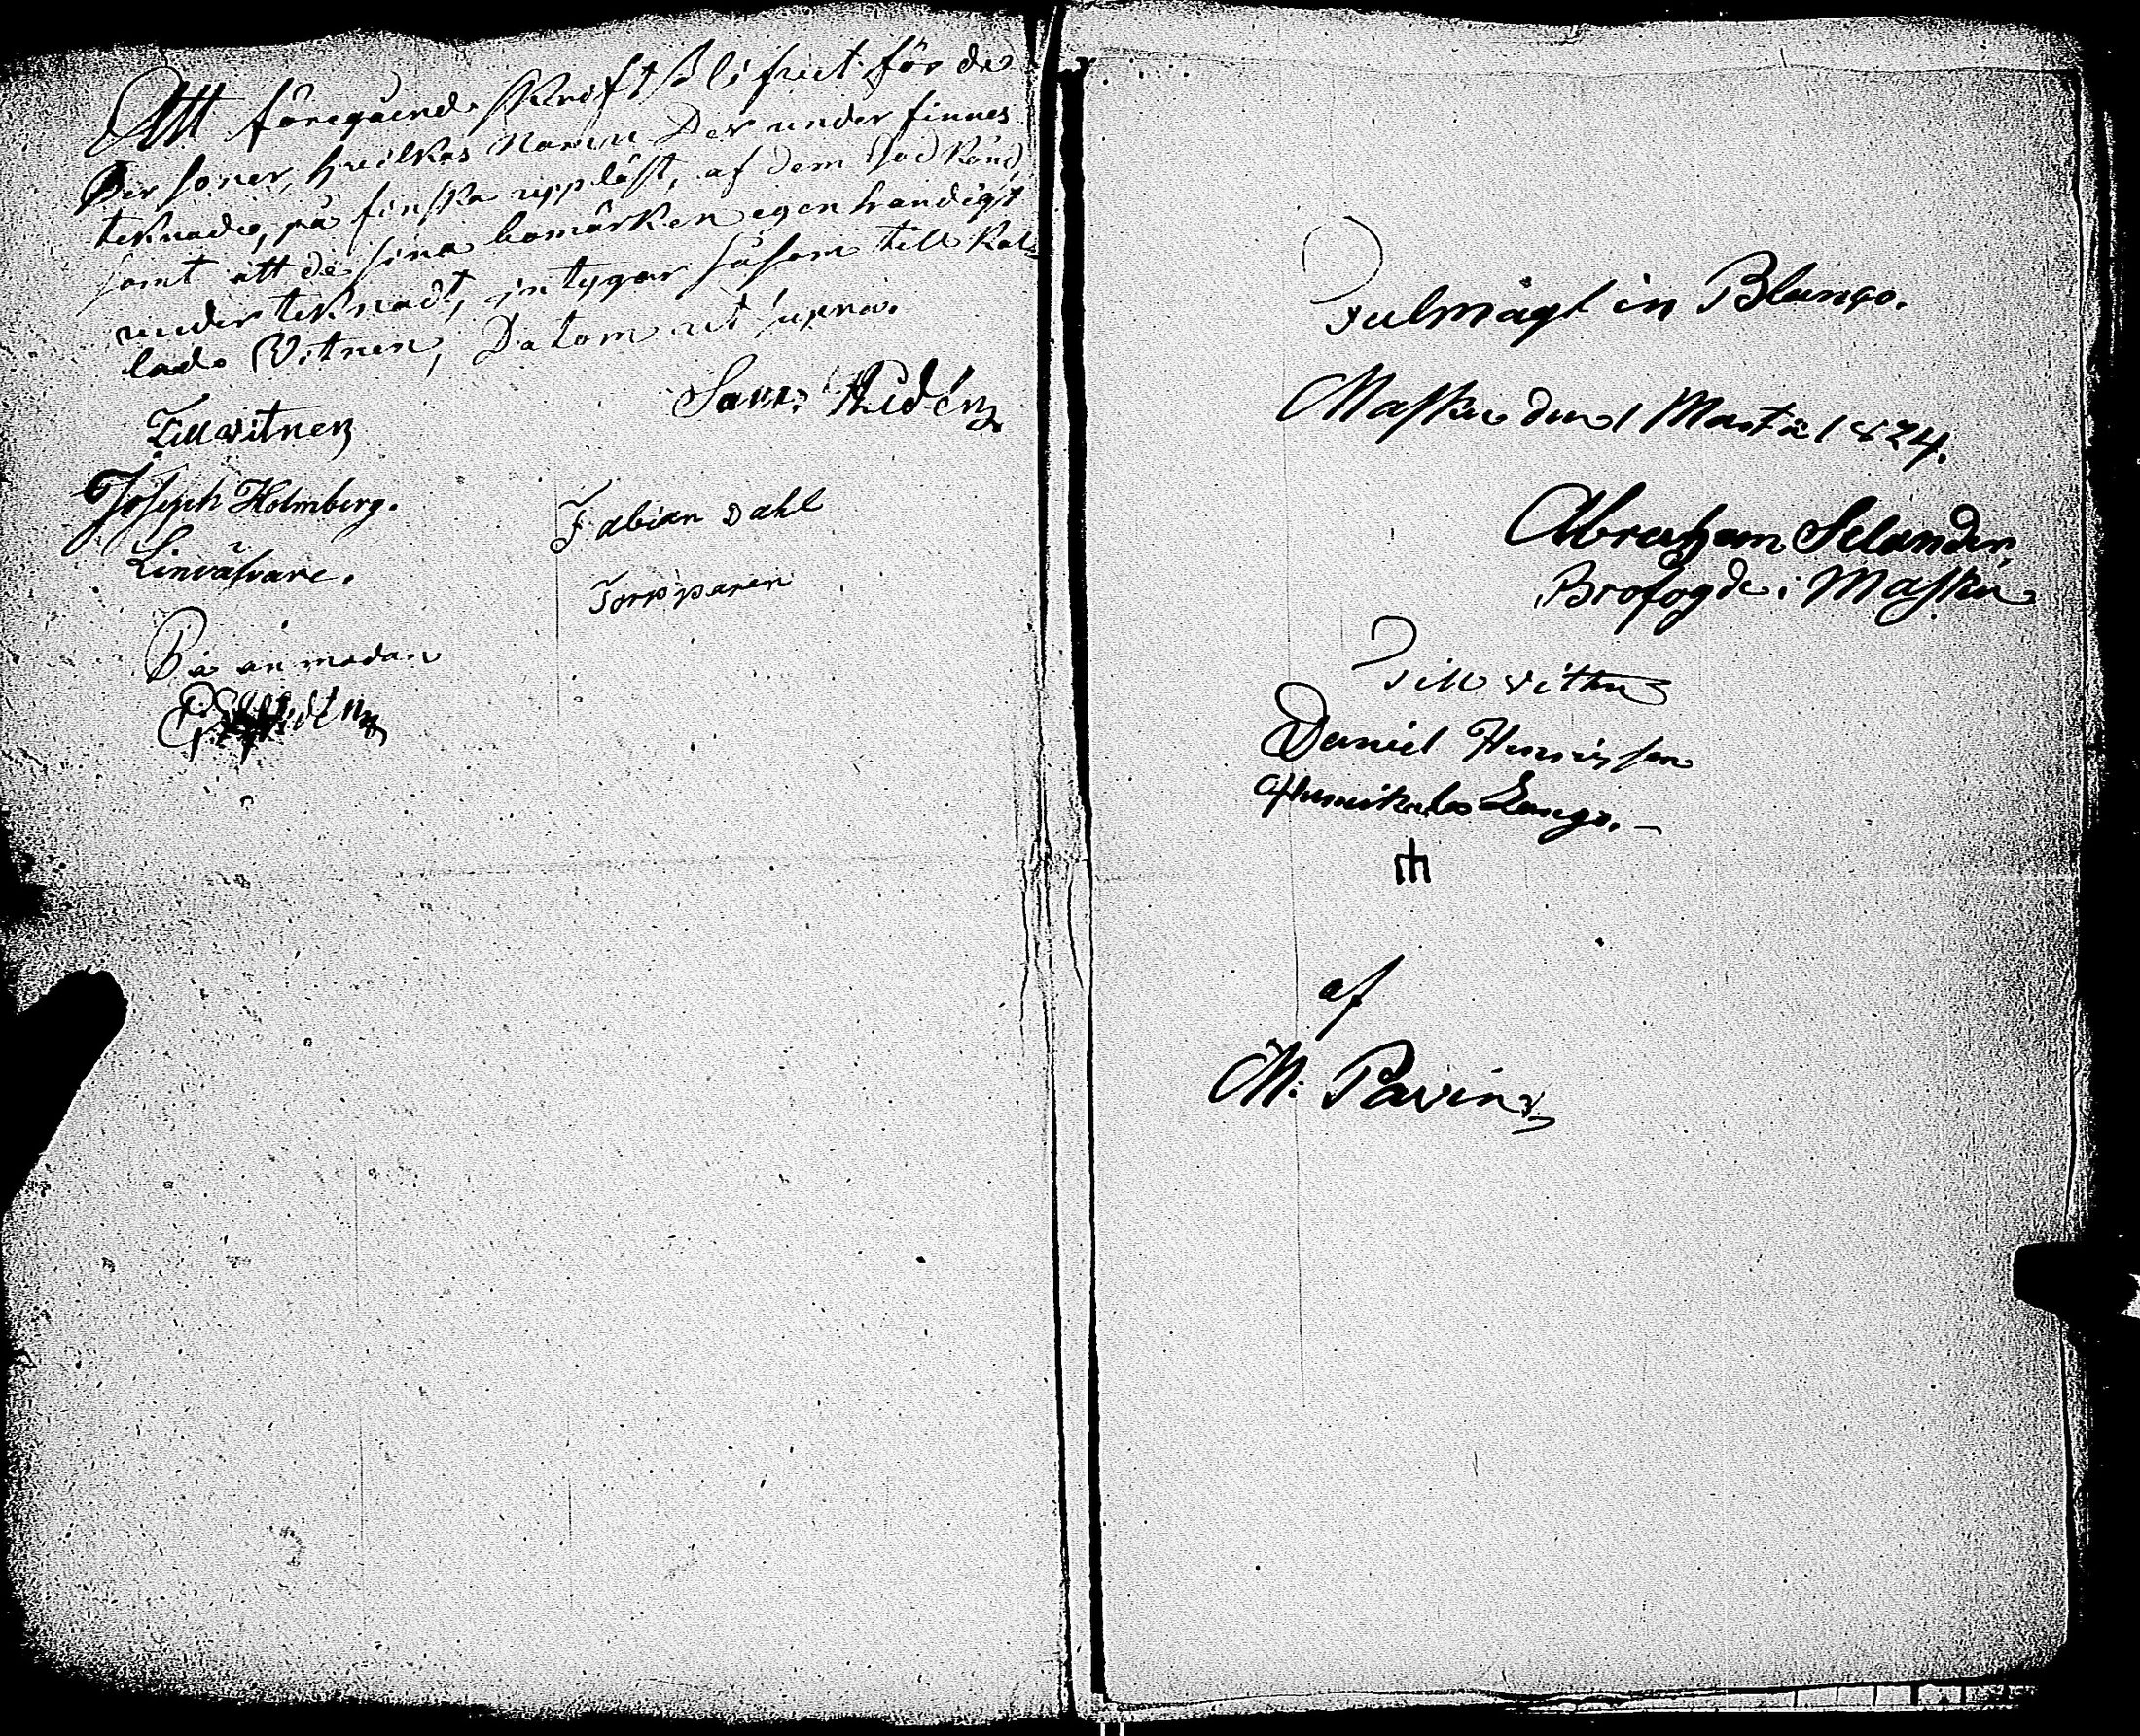 Att föregående Skrift Blifvit för de
Personer, hvilkas Namn Der under finnes
teknade, på finska uppläst, af dem Godkänd,
samt att de sina bomärken egenhändigt
underteknadt, intygar såsom till kal-
lade Vitnen, Datom ut supra.
Sam: Widén
Till vitnen
Joseph Holmberg.
Fabian Dahl
Linväfvare.
Torpparen
På anmodan
Fulmagt in Blanco.
Masku den 1 Martii 1824.
Abraham Selander
Brofogde i Masku
Till vittne
Daniel Henrisson
Lango.
af
M: Pavin